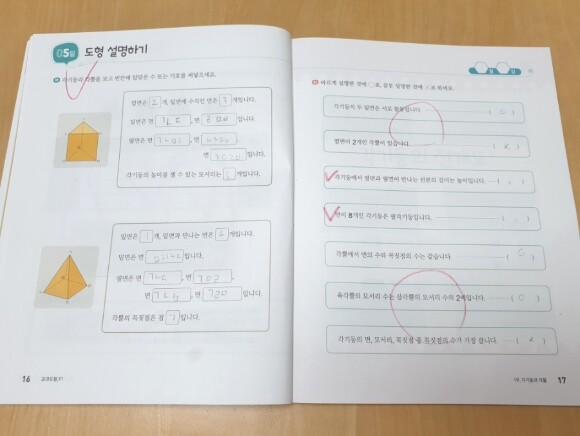 05일 도형 설명하기
각기둥과 각뿔을 보고 빈칸에 알맞은 수 또는 기호를 써넣으세요.
밑면은 2 개, 밑면에 수직인 면은 3 개입니다.
밑면은 면 ㄱㄴㄷ, 면
옆면은 면, 면
면 입니다.
각기둥의 높이를 잴 수 있는 모서리는 개입니다.
밑면은 1 개, 밑면과 만나는 면은 개입니다.
밑면은 면 입니다.
옆면은 면 ㄱㄴㄷ, 면
면, 면 입니다.
각뿔의 꼭짓점은 점 ㄱ 입니다.
16 교과도형_F1
바르게 설명한 것에 ○표, 잘못 설명한 것에 ×표 하세요.
각기둥의 두 밑면은 서로 합동입니다. ( ○ )
밑면이 2개인 각뿔이 있습니다. ( × )
각기둥에서 밑면과 옆면이 만나는 선분의 길이는 높이입니다.
면이 8개인 각기둥은 팔각기둥입니다.
각뿔에서 면의 수와 꼭짓점의 수는 같습니다. ( ○ )
육각뿔의 모서리 수는 삼각뿔의 모서리 수의 2배입니다. ( ○ )
각기둥의 면, 모서리, 꼭짓점 중 꼭짓점의 수가 가장 큽니다. ( × )
각기둥과 각뿔 17